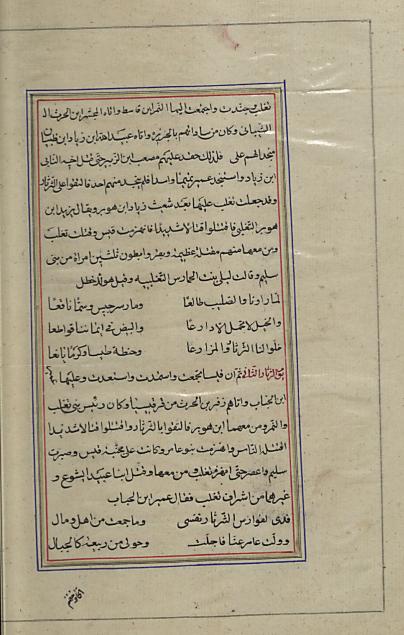 تغلب وحشدت واجتمعت اليها النمر ابن قاسط واتاه المجشر ابن الحرث ال
الشيبانى وكان من ساداتهم بالجزيرة واتاه عبيد الله ابن زياد ابن ظبيان
منجدا لهم على فلذلك حقد عليهم مصعب ابن الزبير حتى قتل اخيه النابى
ابن زياد واستنجد عمير تميما واسدا فلم ينجد منهم احد فالتقوا على الثرثار
وقد جعلت تغلب عليها بعد شعيث زياد ابن هوبر ويقال يزيد ابن
هوبر التغلبى فاقتتلوا قتالا شديدا فانهزمت قيس وقتلت تغلب
ومن معها منهم مقتلة عظيمة وبقروا بطون ثلثين امراة من بنى
سليم وقالت ليلى بنت الحمارس التغلبيه وقيل هو للاخطل
لما راونا والصليب طالعا ومار سرجيس وسما ناقعا
والخيل لا تحمل الا دارعا والبيض فى ايماننا قواطعا
خلوا لنا الثرثار والمزارعا وحنطة طيسا وكرما يانعا
يوم الثرثار الثانى ثم ان قيسا تجمعت واستمدت واستعدت وعليها عمير
ابن الحباب واتاهم زفر ابن الحرث من قرقيسيا وكان رئيس بنى تغلب
والنمر ومن معهما ابن هوبر فالتقوا بالثرثار واقتتلوا قتالا شديدا
اقتتله الناس وانهزمت بنو عامر وكانت على مجنبة قيس وصبرت
سليم واعصر حتى انهزمت تغلب ومن معها وقتل ابنا عبد يشوع و
غيرهما من اشراف تغلب فقال عمير ابن الحباب
فدى لفوارس الثرثار نفسى وما جمعت من اهل ومال
وولت عامر عنا فاجلت وحولى من ربيعة كالجبال